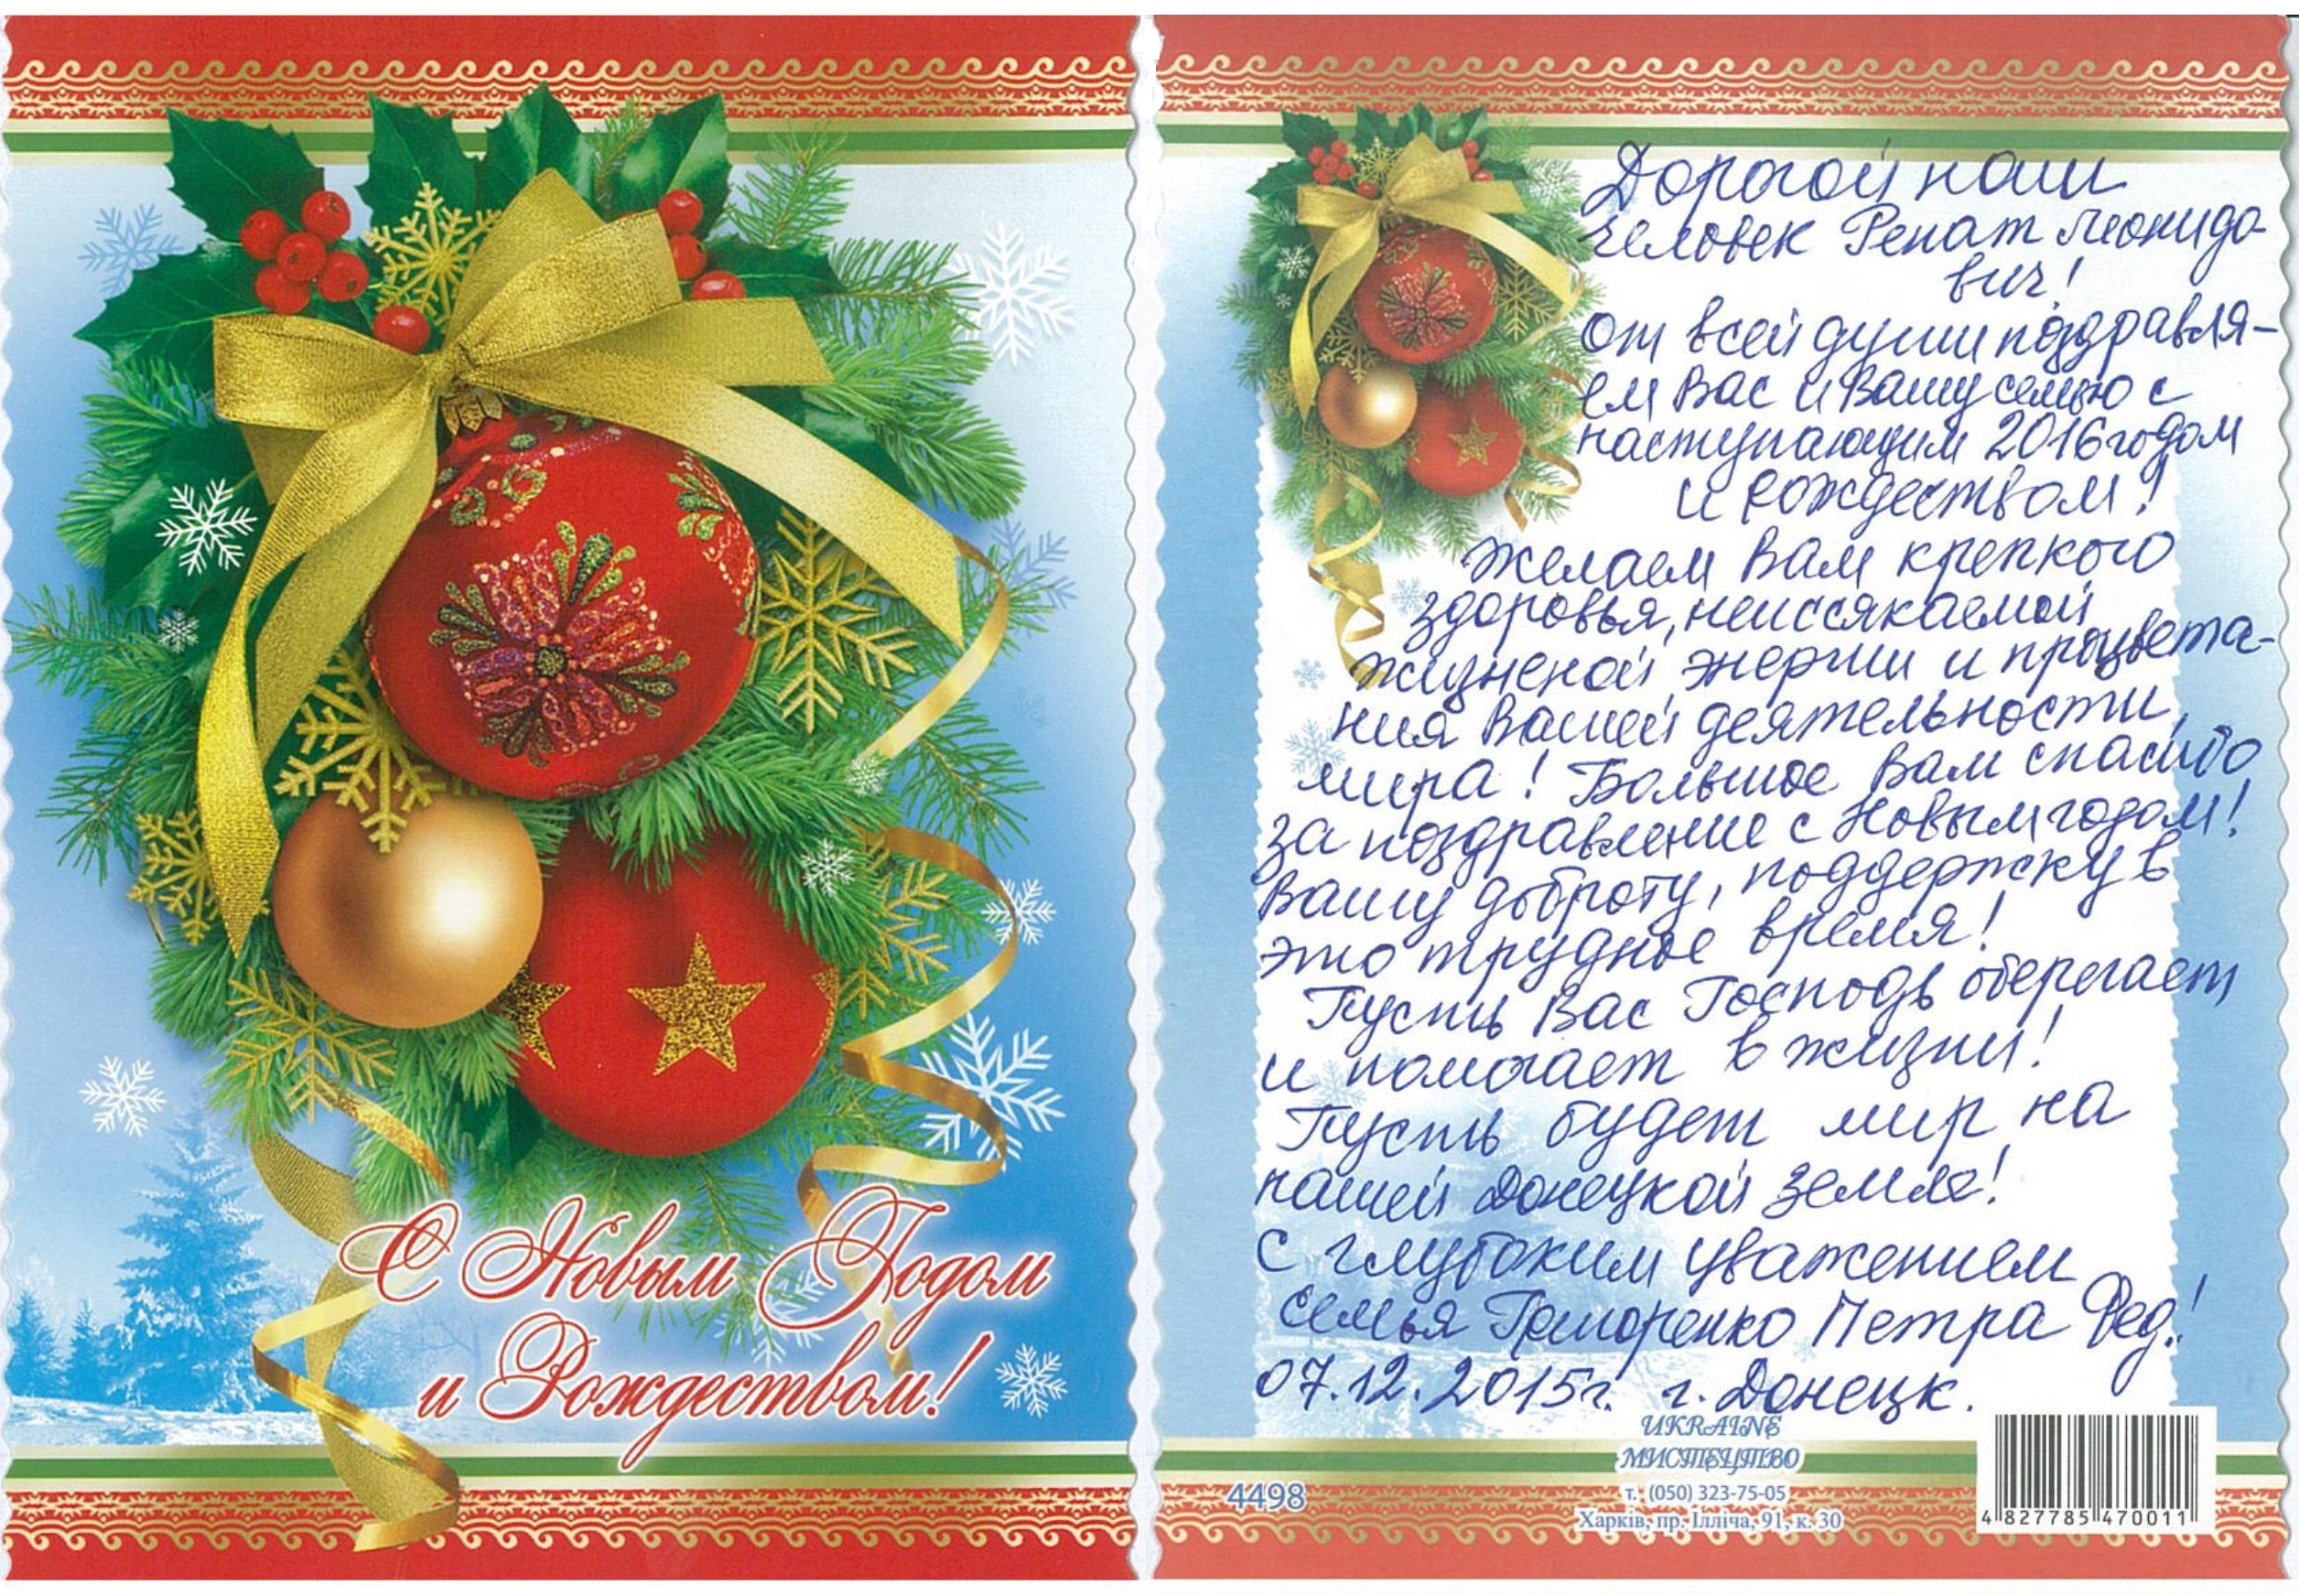 С Новым Годом
и Рождеством!
Дорогой наш
человек Ренат Леонидо-
вич!
От всей души поздравля-
ем Вас и Вашу семью с
наступающим 2016 годом
и рождеством!
Желаем Вам крепкого
здоровья, неиссякаемой
жизненой энергии и процвета-
ния Вашей деятельности,
мира! Большое Вам спасибо
за поздравление с Новым годом!
Вашу доброту, поддержку в
это трудное время!
Пусть Вас Господь оберегает
и помогает в жизни!
Пусть будет мир на
нашей Донецкой земле!
С глубоким уважением
семья Григоренко Петра Фед.!
07.12.2015г. г. Донецк.
UKRAINE
МИСТЕЦТВО
т. (050) 323-75-05
Харків, пр. Ілліча, 91, к. 30
4498
4 827785 470011